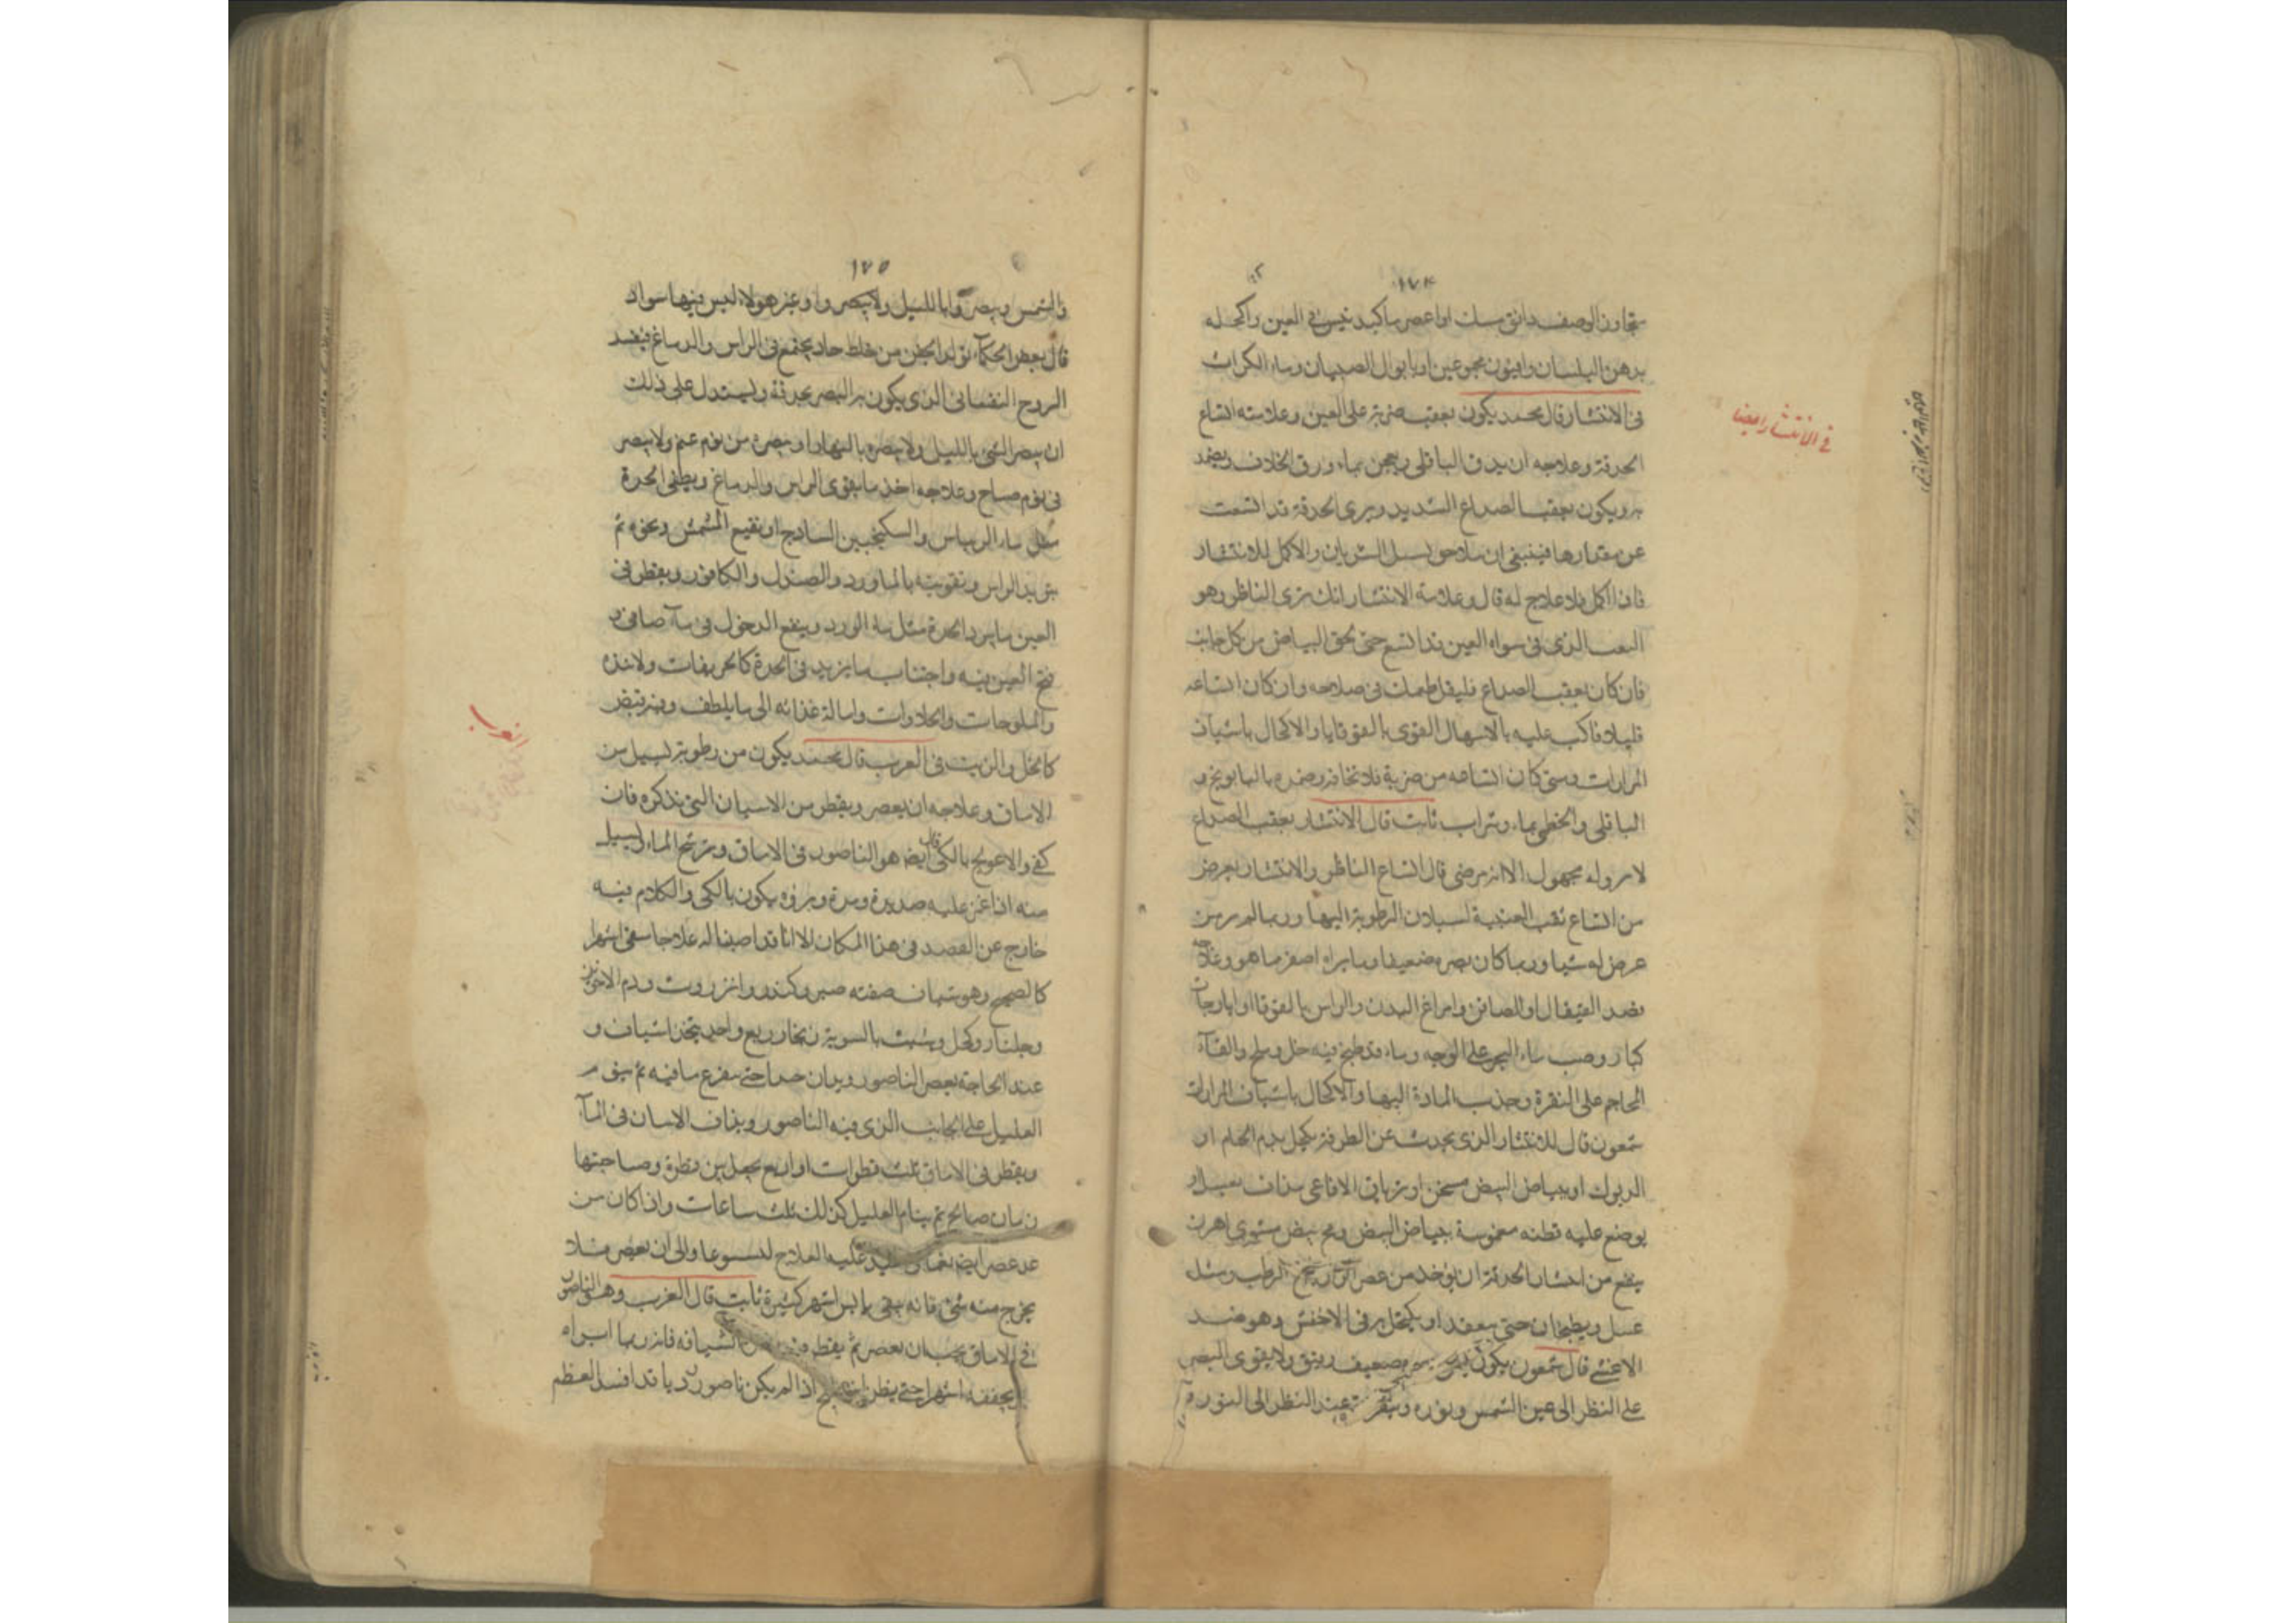 ١٧٤
بدهن البلسان وافيون مجموعين او بابوال الصبيان وماء الكراث
فى الانتشار قال محمد يكون بعقب ضربة على العين وعلامته اتساع
الحدقة وعلاجه ان يدق الباقلى ويعجن بماء ورق الخلاف ويضمد
به ويكون بعقب الصداع الشديد ويرى الحدقة قد اتسعت
عن مقدارها فينبغى ان يلاحق بسل الشريان والاكمل للانتشار
فاذا اكمل فلا علاج له قال وعلامة الانتشار انك ترى الناظر وهو
الثقب الذى فى سواد العين قد اتسع حتى لحق البياض من كل جانب
فان كان بعقب الصداع فليقل طمعك فى صلاحه وان كان اتساعه
قليلا فاكب عليه بالاسهال القوى بالقوقايا والاكحال باشياف
المرارات ومتى كان اتساعه من ضربة فلا تخافه وضمده بالبابونج و
الباقلى والخطمى بماء وشراب ثابت قال الانتشار بعقب الصداع
لا برؤ له مجهول الا انه مرضى قال اتساع الناظر والانتشار يعرض
من اتساع ثقب العنبية لسيلان الرطوبة اليها وربما لم ير من
عرض له شيا وربما كان بصره ضعيفا وما يراه اصغر مما هو وعلاجه
فصد القيفال او الصافن وافراغ البدن والراس بالقوقايا او ايارجات
كبار وصب ماء البحر على الوجه وماء قد طبخ فيه خل وملح والقاء
المحاجم على النقرة وجذب المادة اليها والاكحال باشياف المرارات
شمعون قال للانتشار الذى يحدث عن الطرفة يكحل بدم الحمام او
الديوك او ببياض البيض مسخن او ترياق الافاعى يذاف بعسل و
يوضع عليه قطنه مغموسة ببياض البيض ومح بيض مشوى اهرن
ينفع من انتشار الحدقة ان يؤخذ من عصر الرازيانج الرطب ومثل
عسل ويطبخان حتى ينعقد او يكتحل به فى الاخفش وهو ضد
الاعشى قال شمعون يكون بصره ضعيف رقيق ولا يقوى البصر
على النظر الى عين الشمس ونوره عند النظر الى النور
فى الانتشار ايضا
١٧٥
والشمس وابا الليل ولا يبصروا وغير هولاء ليس فيها سواد
قال بعض الحكماء تولد الجهر من خلط حاد يجتمع فى الراس والدماغ فيفسد
الروح النفسانى الذى يكون به البصر بحرقة ويستدل على ذلك
ان يبصر الشى بالليل ولا يبصره بالنهار او يبصره من يوم غيم ولا يبصر
فى يوم صباح وعلاجه اخذ ما يقوى الراس والدماغ ويطفى الحدة
مثل ماء الريباس والسكنجبين السادج او نقيع المشمش ونحوه ثم
تبريد الراس وتقويته بالماورد والصندل والكافور ويقطر فى
العين ما يبرد الحدة مثل ماء الورد وينفع الدخول فى ماء صافى و
فتح العين فيه واجتناب ما يزيد فى الحدة كالحريفات
والملوحات والحلاوات وامالة غذائه الى ما يلطف وفيه قبض
كالخل والزيت فى الغرب قال محمد يكون من رطوبة تسيل من
الاماق وعلاجه ان يعصر ويقطر من الاشياف التى نذكره فان
كفى والا عولج بالكى قال ايضا هو الناصور فى الاماق وترشح الماء لسيل
منه اذا غمز عليه صديدة ومدة وبرؤه يكون بالكى والكلام فيه
خارج عن القصد فى هذا المكان الا انا قد اصبنا له علاجا سقى اشهرا
كالصحيح وهو شياف صفته صبر وكندر وانزروت ودم الاخوين
وجلنار وكحل وشب بالسوية زنجار ربع واحد يتخذ اشياف و
عند الحاجة يعصر الناصور ويدان جدا حتى يفرغ ما فيه ثم ينوم
العليل على الجانب الذى فيه الناصور ويذاف الاشياف فى الماء
ويقطر فى الاماق ثلث قطرات او اربع يجعل بين قطرة وصاحبتها
زمان صالح ثم ينام العليل كذلك ثلث ساعات واذا كان من
غد عصر ايضا عليه العلاج اسبوعا والى ان يعصر فلا
يخرج منه شى فانه يبقى يابس اشهر كثيرة ثابت قال الغرب وهو الناصور
فى الاماق يجب ان يعصر ثم يقطر الشيافة فانه ربما ابراه
ويجففه اشهرا حتى يظن اذا لم يكن ناصور رديا قد افسد العظم